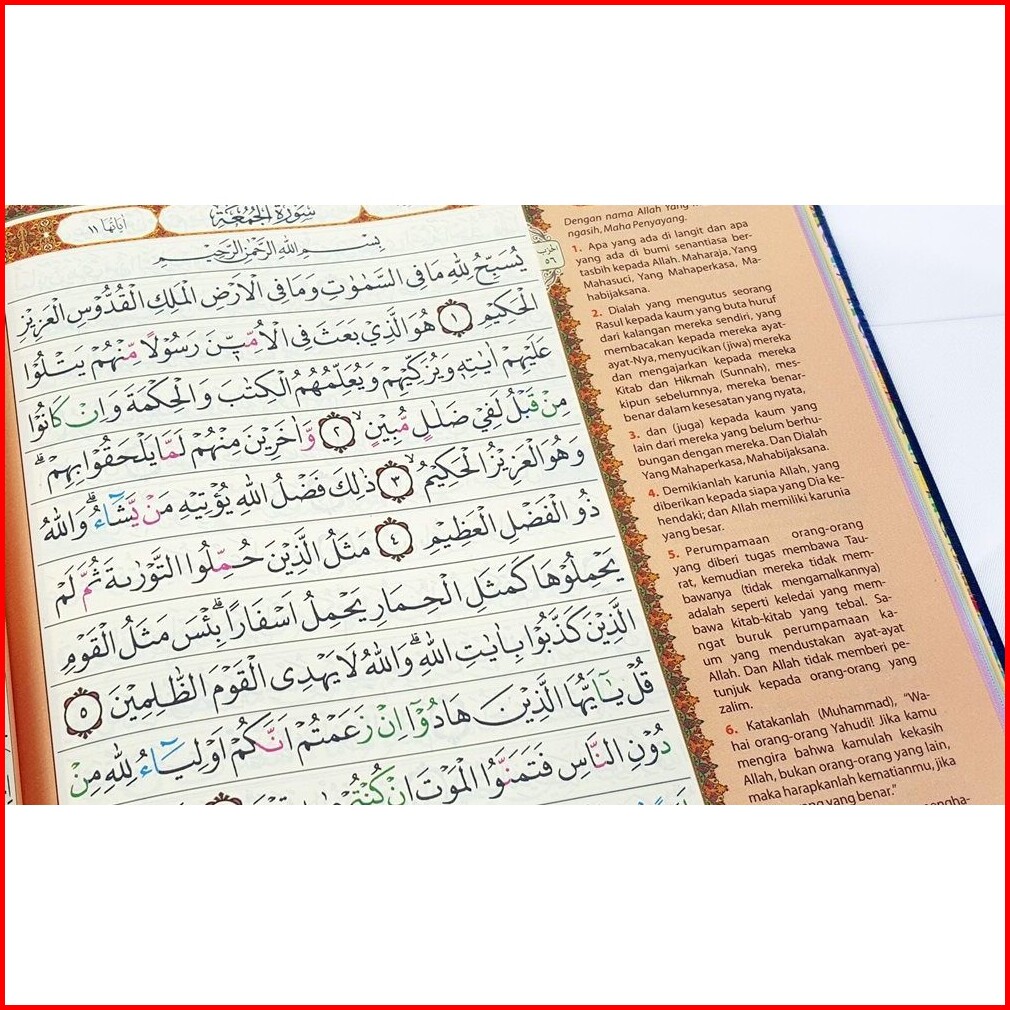 سُورَةُ الْجُمُعَةِ
اٰيَاتُهَا ١١
بِسْمِ اللّٰهِ الرَّحْمٰنِ الرَّحِيْمِ
يُسَبِّحُ لِلّٰهِ مَا فِى السَّمٰوٰتِ وَمَا فِى الْاَرْضِ الْمَلِكِ الْقُدُّوْسِ الْعَزِيْزِ
الْحَكِيْمِ ١ هُوَ الَّذِيْ بَعَثَ فِى الْاُمِّيّٖنَ رَسُوْلًا مِّنْهُمْ يَتْلُوْا
عَلَيْهِمْ اٰيٰتِهٖ وَيُزَكِّيْهِمْ وَيُعَلِّمُهُمُ الْكِتٰبَ وَالْحِكْمَةَ وَاِنْ كَانُوْا
مِنْ قَبْلُ لَفِيْ ضَلٰلٍ مُّبِيْنٍۙ ٢ وَّاٰخَرِيْنَ مِنْهُمْ لَمَّا يَلْحَقُوْا بِهِمْۗ
وَهُوَ الْعَزِيْزُ الْحَكِيْمُ ٣ ذٰلِكَ فَضْلُ اللّٰهِ يُؤْتِيْهِ مَنْ يَّشَاۤءُۗ وَاللّٰهُ
ذُو الْفَضْلِ الْعَظِيْمِ ٤ مَثَلُ الَّذِيْنَ حُمِّلُوا التَّوْرٰىةَ ثُمَّ لَمْ
يَحْمِلُوْهَا كَمَثَلِ الْحِمَارِ يَحْمِلُ اَسْفَارًاۗ بِئْسَ مَثَلُ الْقَوْمِ
الَّذِيْنَ كَذَّبُوْا بِاٰيٰتِ اللّٰهِۗ وَاللّٰهُ لَا يَهْدِى الْقَوْمَ الظّٰلِمِيْنَ ٥
قُلْ يٰٓاَيُّهَا الَّذِيْنَ هَادُوْٓا اِنْ زَعَمْتُمْ اَنَّكُمْ اَوْلِيَاۤءُ لِلّٰهِ مِنْ
دُوْنِ النَّاسِ فَتَمَنَّوُا الْمَوْتَ اِنْ كُنْتُمْ
حزب
٥٦
Dengan nama Allah Yang
ngasih, Maha Penyayang.
1. Apa yang ada di langit dan apa
yang ada di bumi senantiasa ber-
tasbih kepada Allah. Maharaja, Yang
Mahasuci, Yang Mahaperkasa, Ma-
habijaksana.
2. Dialah yang mengutus seorang
Rasul kepada kaum yang buta huruf
dari kalangan mereka sendiri, yang
membacakan kepada mereka ayat-
ayat-Nya, menyucikan (jiwa) mereka
dan mengajarkan kepada mereka
Kitab dan Hikmah (Sunnah), mes-
kipun sebelumnya, mereka benar-
benar dalam kesesatan yang nyata,
3. dan (juga) kepada kaum yang
lain dari mereka yang belum berhu-
bungan dengan mereka. Dan Dialah
Yang Mahaperkasa, Mahabijaksana.
4. Demikianlah karunia Allah, yang
diberikan kepada siapa yang Dia ke-
hendaki; dan Allah memiliki karunia
yang besar.
5. Perumpamaan orang-orang
yang diberi tugas membawa Tau-
rat, kemudian mereka tidak mem-
bawanya (tidak mengamalkannya)
adalah seperti keledai yang mem-
bawa kitab-kitab yang tebal. Sa-
ngat buruk perumpamaan ka-
um yang mendustakan ayat-ayat
Allah. Dan Allah tidak memberi pe-
tunjuk kepada orang-orang yang
zalim.
6. Katakanlah (Muhammad), "Wa-
hai orang-orang Yahudi! Jika kamu
mengira bahwa kamulah kekasih
Allah, bukan orang-orang yang lain,
maka harapkanlah kematianmu, jika
yang benar."